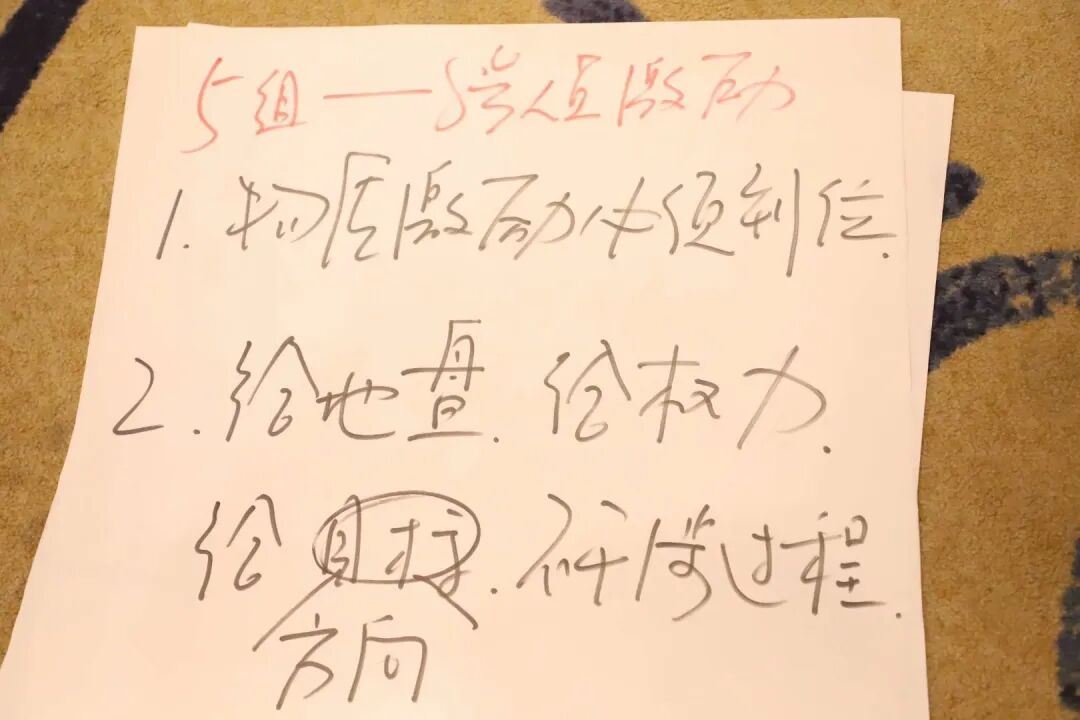 5组——值激励
1. 物质激励必须到位.
2. 给地盘. 给权力.
给目标. 不干涉过程.
方向